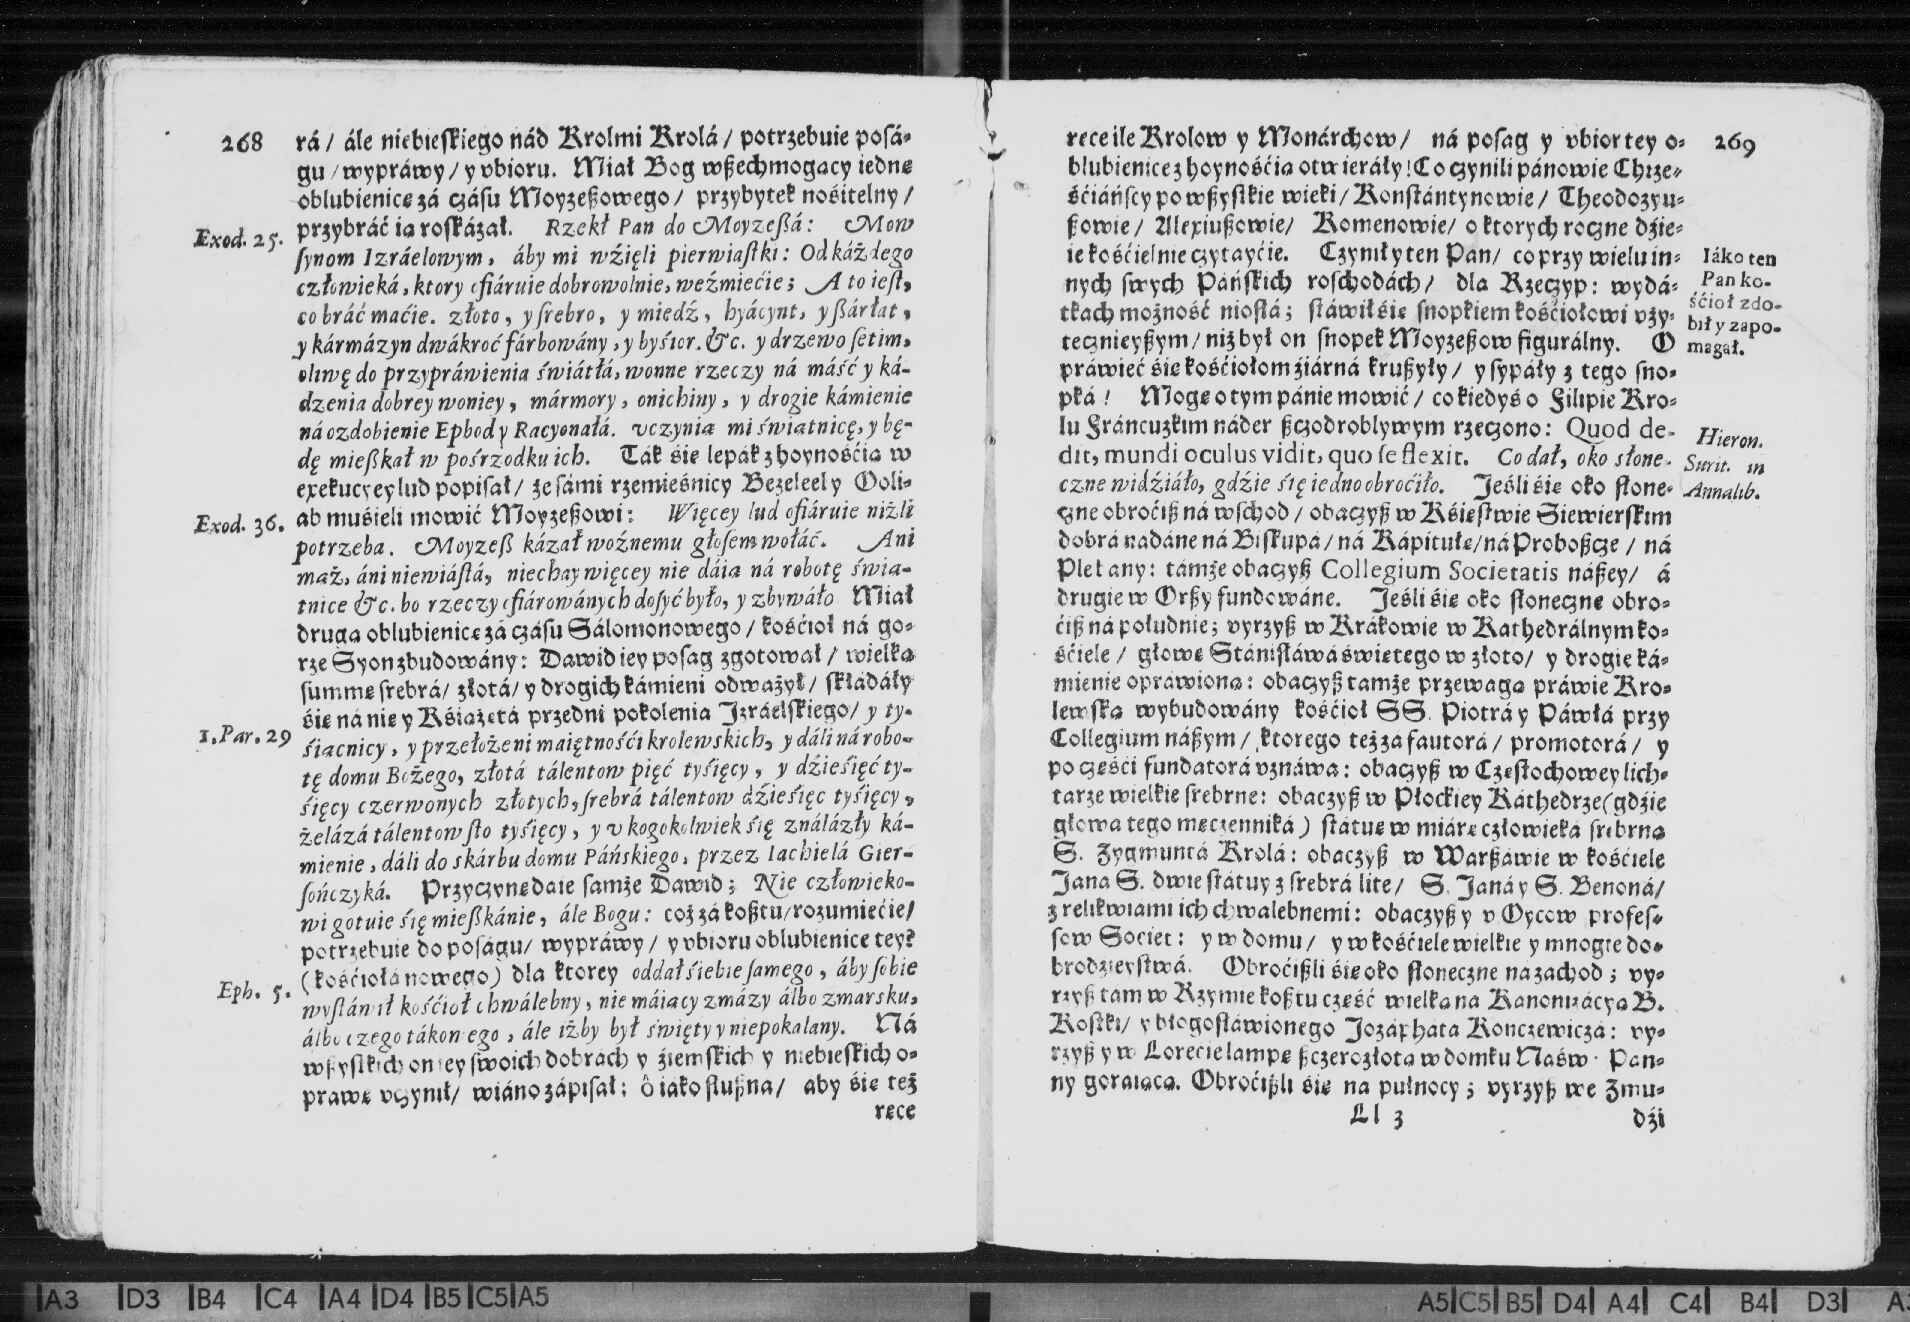 268
rá/ ále niebieſkiego nád Krolmi Krolá/ potrzebuie poſá-
gu/ wypráwy/ y vbioru. Miał Bog wßechmogący iednę
oblubienicę zá czáſu Moyzeßowego/ przybytek nośitelny/
przybráć ią roſkázał. Rzekł Pan do Moyzeßá: Mow
Exod. 25.
ſynom Izráelowym, áby mi wźięli pierwiaſtki: Od káżdego
człowieká, ktory ofiáruie dobrowolnie, weźmiećie; A to ieſt,
co bráć maćie. złoto, y ſrebro, y miedź, hyácynt, y ßárłat,
y kármázyn dwákroć fárbowány, y byśior. &c. y drzewo ſetim,
oliwę do przypráwienia świátłá, wonne rzeczy ná máść y ká-
dzenia dobrey woniey, mármory, onichiny, y drogie kámienie
ná ozdobienie Ephod y Racyonałá. vczynią mi świątnicę, y bę-
dę mießkał w pośrzodku ich. Ták śię lepák z hoynośćią w
exekucyey lud popiſał/ że ſámi rzemieśnicy Bezeleel y Ooli-
ab muśieli mowić Moyzeßowi: Więcey lud ofiáruie niżli
Exod. 36.
potrzeba. Moyzeß kázał woźnemu głoſem wołáć. Ani
mąż, áni niewiáſtá, niechay więcey nie dáią ná robotę świą-
tnice &c. bo rzeczy ofiárowánych doſyć było, y zbywáło Miał
drugą oblubienicę zá czáſu Sálomonowego/ kośćioł ná go-
rze Syon zbudowány: Dawid iey poſag zgotował/ wielką
ſummę ſrebrá/ złotá/ y drogich kámieni odważył/ ſkłádáły
śię ná nię y Kśiążętá przedni pokolenia Izráelſkiego/ y ty-
1. Par. 29
śiącnicy, y przełożeni maiętnośći krolewskich, y dáli ná robo-
tę domu Bożego, złotá tálentow pięć tyśięcy, y dźieśięć ty-
śięcy czerwonych złotych, ſrebrá tálentow dźieśięc tyśięcy,
żelázá tálentow ſto tyśięcy, y v kogokolwiek śię ználázły ká-
mienie, dáli do skárbu domu Páńskiego, przez Iachielá Gier-
ſończyká. Przyczynę daie ſamże Dawid; Nie człowieko-
wi gotuie śię mießkánie, ále Bogu: coż zá koßtu/ rozumiećie/
potrzebuie do poſágu/ wypráwy/ y vbioru oblubienice tey?
(kośćiołá nowego) dla ktorey oddał śiebie ſamego, áby ſobie
Eph. 5.
wyſtáwił kośćioł chwálebny, nie máiący zmázy álbo zmarsku,
álbo czego tákowego, ále iżby był święty y niepokalany. Ná
wßyſtkich oniey ſwoich dobrách y źiemſkich y niebieſkich o-
prawę vczynił/ wiáno zápiſał: ô iáko ſłußna/ aby śię też
ręce
269
ręce ile Krolow y Monárchow/ ná poſag y vbior tey o-
blubienice z hoynośćią otwieráły! Co czynili pánowie Chrze-
śćiáńſcy po wßyſtkie wieki/ Konſtántynowie/ Theodozyu-
ßowie/ Alexiußowie/ Komenowie/ o ktorych roczne dźie-
ie kośćielnie czytayćie. Czynił y ten Pan/ co przy wielu in-
Iáko ten
Pan ko-
śćioł zdo-
bił y zapo-
magał.
nych ſwych Páńſkich roſchodách/ dla Rzeczyp: wydá-
tkách możność nioſłá; ſtáwił śię ſnopkiem kośćiołowi vży-
tecznieyßym/ niż był on ſnopek Moyzeßow figurálny. O
práwieć śię kośćiołom źiárná krußyły/ y ſypáły z tego ſno-
pká! Mogę o tym pánie mowić/ co kiedyś o Filipie Kro-
lu Fráncuzkim náder ßczodroblywym rzeczono: Quod de-
Hieron.
Surit. in
Annalib.
dit, mundi oculus vidit, quo ſe flexit. Co dał, oko słone-
czne widźiáło, gdźie śię iedno obroćiło. Jeśli śię oko ſłone-
czne obroćiß ná wſchod/ obaczyß w Kśięſtwie Siewierſkim
dobrá nadáne ná Biſkupá/ ná Kápitułę/ ná Proboßcze/ ná
Plebany: támże obaczyß Collegium Societatis náßey/ á
drugie w Orßy fundowáne. Jeśli śię oko ſłoneczne obro-
ćiß ná południe; vyrzyß w Krákowie w Kathedrálnym ko-
śćiele/ głowę Stániſłáwá świętego w złoto/ y drogie ká-
mienie opráwioną: obaczyß tamże przewagą práwie Kro-
lewſką wybudowány kośćioł SS. Piotrá y Páwłá przy
Collegium náßym/ ktorego też zá fautorá/ promotorá/ y
po częśći fundatorá vznáwa: obaczyß w Częſtochowey lich-
tarze wielkie ſrebrne: obaczyß w Płockiey Káthedrze (gdźie
głowa tego męczenniká) ſtátuę w miárę człowieká ſrebrną
S. Zygmuntá Krolá: obaczyß w Warßáwie w kośćiele
Jana S. dwie ſtátuy z ſrebrá lite/ S. Janá y S. Benoná/
z relikwiami ich chwalebnemi: obaczyß y v Oycow profeſ-
ſow Societ: y w domu/ y w kośćiele wielkie y mnogie do-
brodzieyſtwá. Obroćißli śię oko ſłoneczne na zachod; vy-
rzyß tam w Rzymie koßtu część wielką na Kanonizácyą B.
Koſtki/ y błogoſłáwionego Jozáphata Konczewiczá: vy-
rzyß y w Lorecie lampę ßczerozłotą w domku Naśw. Pan-
ny goraiącą. Obroćißli śię na pułnocy; vyrzyß we Zmu-
Ll 3
dźi